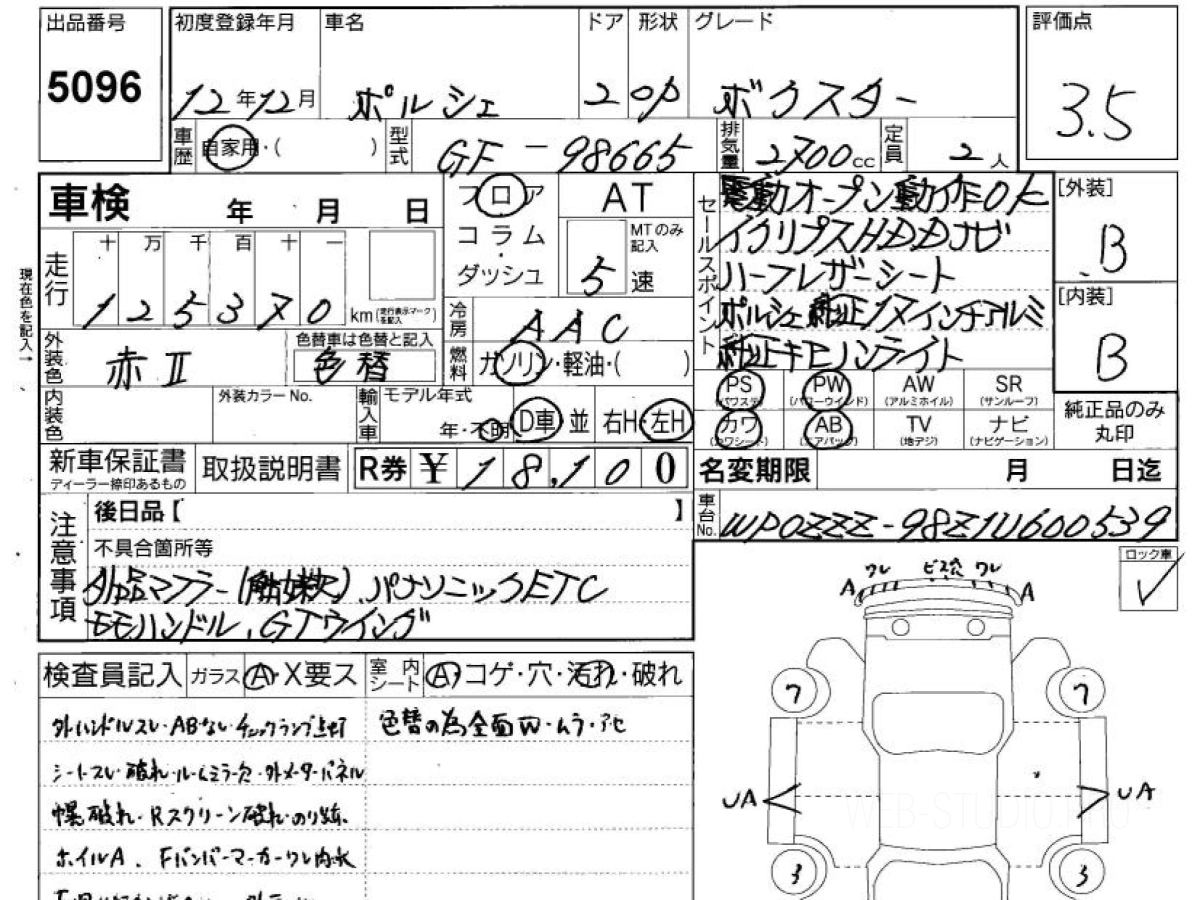 出品番号 初度登録年月 車名 ドア 形状 グレード 評価点
5096 12年12月 ポルシェ 2 op ボクスター 3.5
車歴 自家用・( ) 型式 GF-98665 排気量 2700cc 定員 2人
車検 年 月 日
フロア AT
コラム
ダッシュ 5速 MTのみ記入
現在色を記入→
走行 十 万 千 百 十 一
125370 km (走行表示マークを記入)
冷房 AAC
燃料 ガソリン・軽油・( )
外装色 赤II 色替車は色替と記入 色替
内装色 外装カラーNo. 輸入車 モデル年式
年・不明 D車 並 右H・左H
セールスポイント
電動オープン動作OK
イクリプスHDDナビ
ハーフレザーシート
ポルシェ純正17インチアルミ
純正キセノンライト
[外装] B
[内装] B
PS (パワステ) PW (パワーウインド) AW (アルミホイル) SR (サンルーフ)
カワ (カワシート) AB (エアバック) TV (地デジ) ナビ (ナビゲーション)
純正品のみ丸印
新車保証書 ディーラー捺印あるもの 取扱説明書 R券 ¥18,100
名変期限 月 日迄
車台No. WP0ZZZ-98Z1U600539
注意事項
後日品【 】
不具合箇所等
外品マフラー(触媒欠)、パナソニックETC
モモハンドル、GTウイング
ロック車 ✓
検査員記入 ガラス A・X要ス 室内シート A・コゲ・穴・汚れ・破れ
外ハンドルスレ・ABなし・チェックランプ点灯
色替の為全面W・ムラ・アセ
シートスレ・破れ・ルームミラー欠・外メーターパネル
幌破れ・Rスクリーン破れ・のり跡、
ホイルA、Fバンパーマーカーワレ内水
A ワレ ビス穴 ワレ A
7 7
UA UA
3 3
WEB-STUDIO.PRO